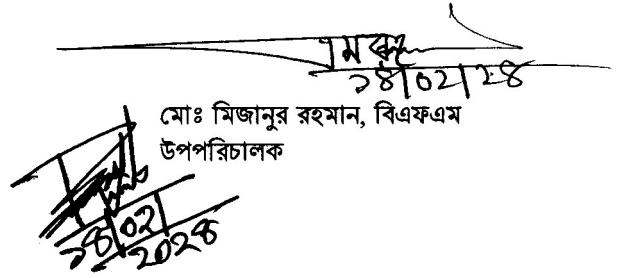 ১৪/০২/২৪
মোঃ মিজানুর রহমান, বিএফএম
উপপরিচালক
১৪/০২/২০২৪